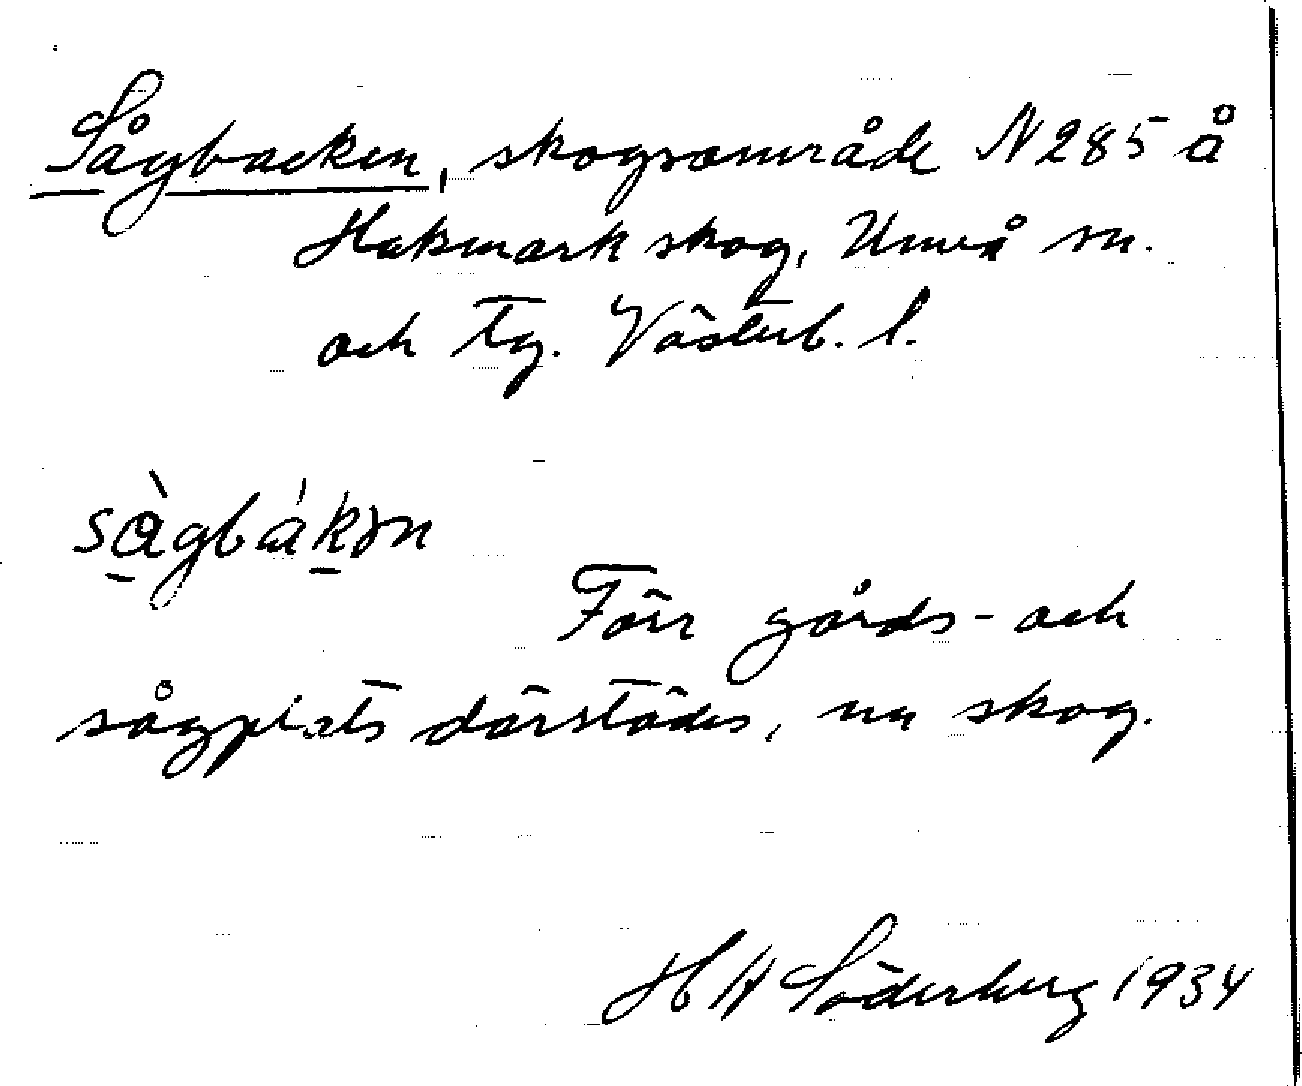 Sågbacken, skogsområde N 285 å
Hakmark skog, Umeå sn.
och tg. Västerb. l.
såg̀bákən
Förr gårds- och
sågplats därstädes, nu skog.
H W Söderberg 1934